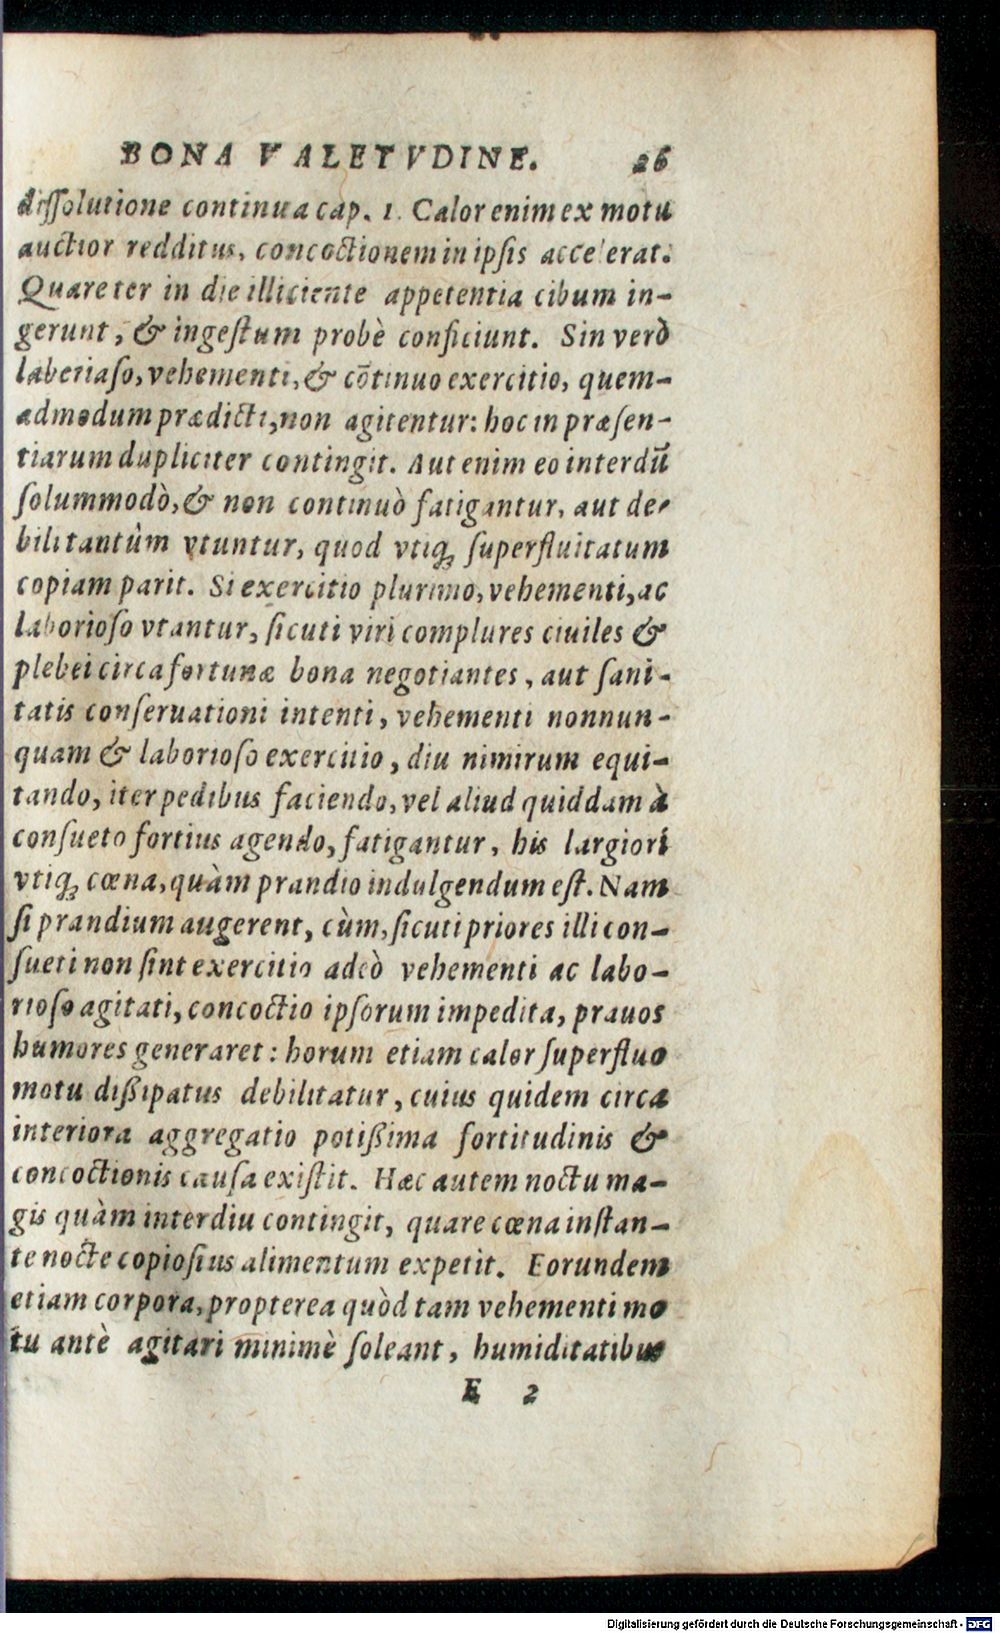 BONA VALETVDINE. 26
diſſolutione continua cap. 1. Calor enim ex motu
auctior redditus, concoctionem in ipſis accelerat.
Quare ter in die illiciente appetentia cibum in-
gerunt, & ingeſtum probè conficiunt. Sin verò
laborioſo, vehementi, & cōtinuo exercitio, quem-
admodum prædicti, non agitentur: hoc in præſen-
tiarum dupliciter contingit. Aut enim eo interdū
ſolummodò, & non continuò fatigantur, aut de-
bili tantùm vtuntur, quod vtiq; ſuperfluitatum
copiam parit. Si exercitio plurimo, vehementi, ac
laborioſo vtantur, ſicuti viri complures ciuiles &
plebei circa fortunæ bona negotiantes, aut ſani-
tatis conſeruationi intenti, vehementi nonnun-
quam & laborioſo exercitio, diu nimirum equi-
tando, iter pedibus faciendo, vel aliud quiddam à
conſueto fortius agendo, fatigantur, his largiori
vtiq; cœna, quàm prandio indulgendum eſt. Nam
ſi prandium augerent, cùm, ſicuti priores illi con-
ſueti non ſint exercitio adeò vehementi ac labo-
rioſo agitati, concoctio ipſorum impedita, prauos
humores generaret: horum etiam calor ſuperfluo
motu diſſipatus debilitatur, cuius quidem circa
interiora aggregatio potiſſima fortitudinis &
concoctionis cauſa exiſtit. Hæc autem noctu ma-
gis quàm interdiu contingit, quare cœna inſtan-
te nocte copioſius alimentum expetit. Eorundem
etiam corpora, propterea quòd tam vehementi mo
tu antè agitari minimè ſoleant, humiditatibus
E 2
Digitalisierung gefördert durch die Deutsche Forschungsgemeinschaft - DFG